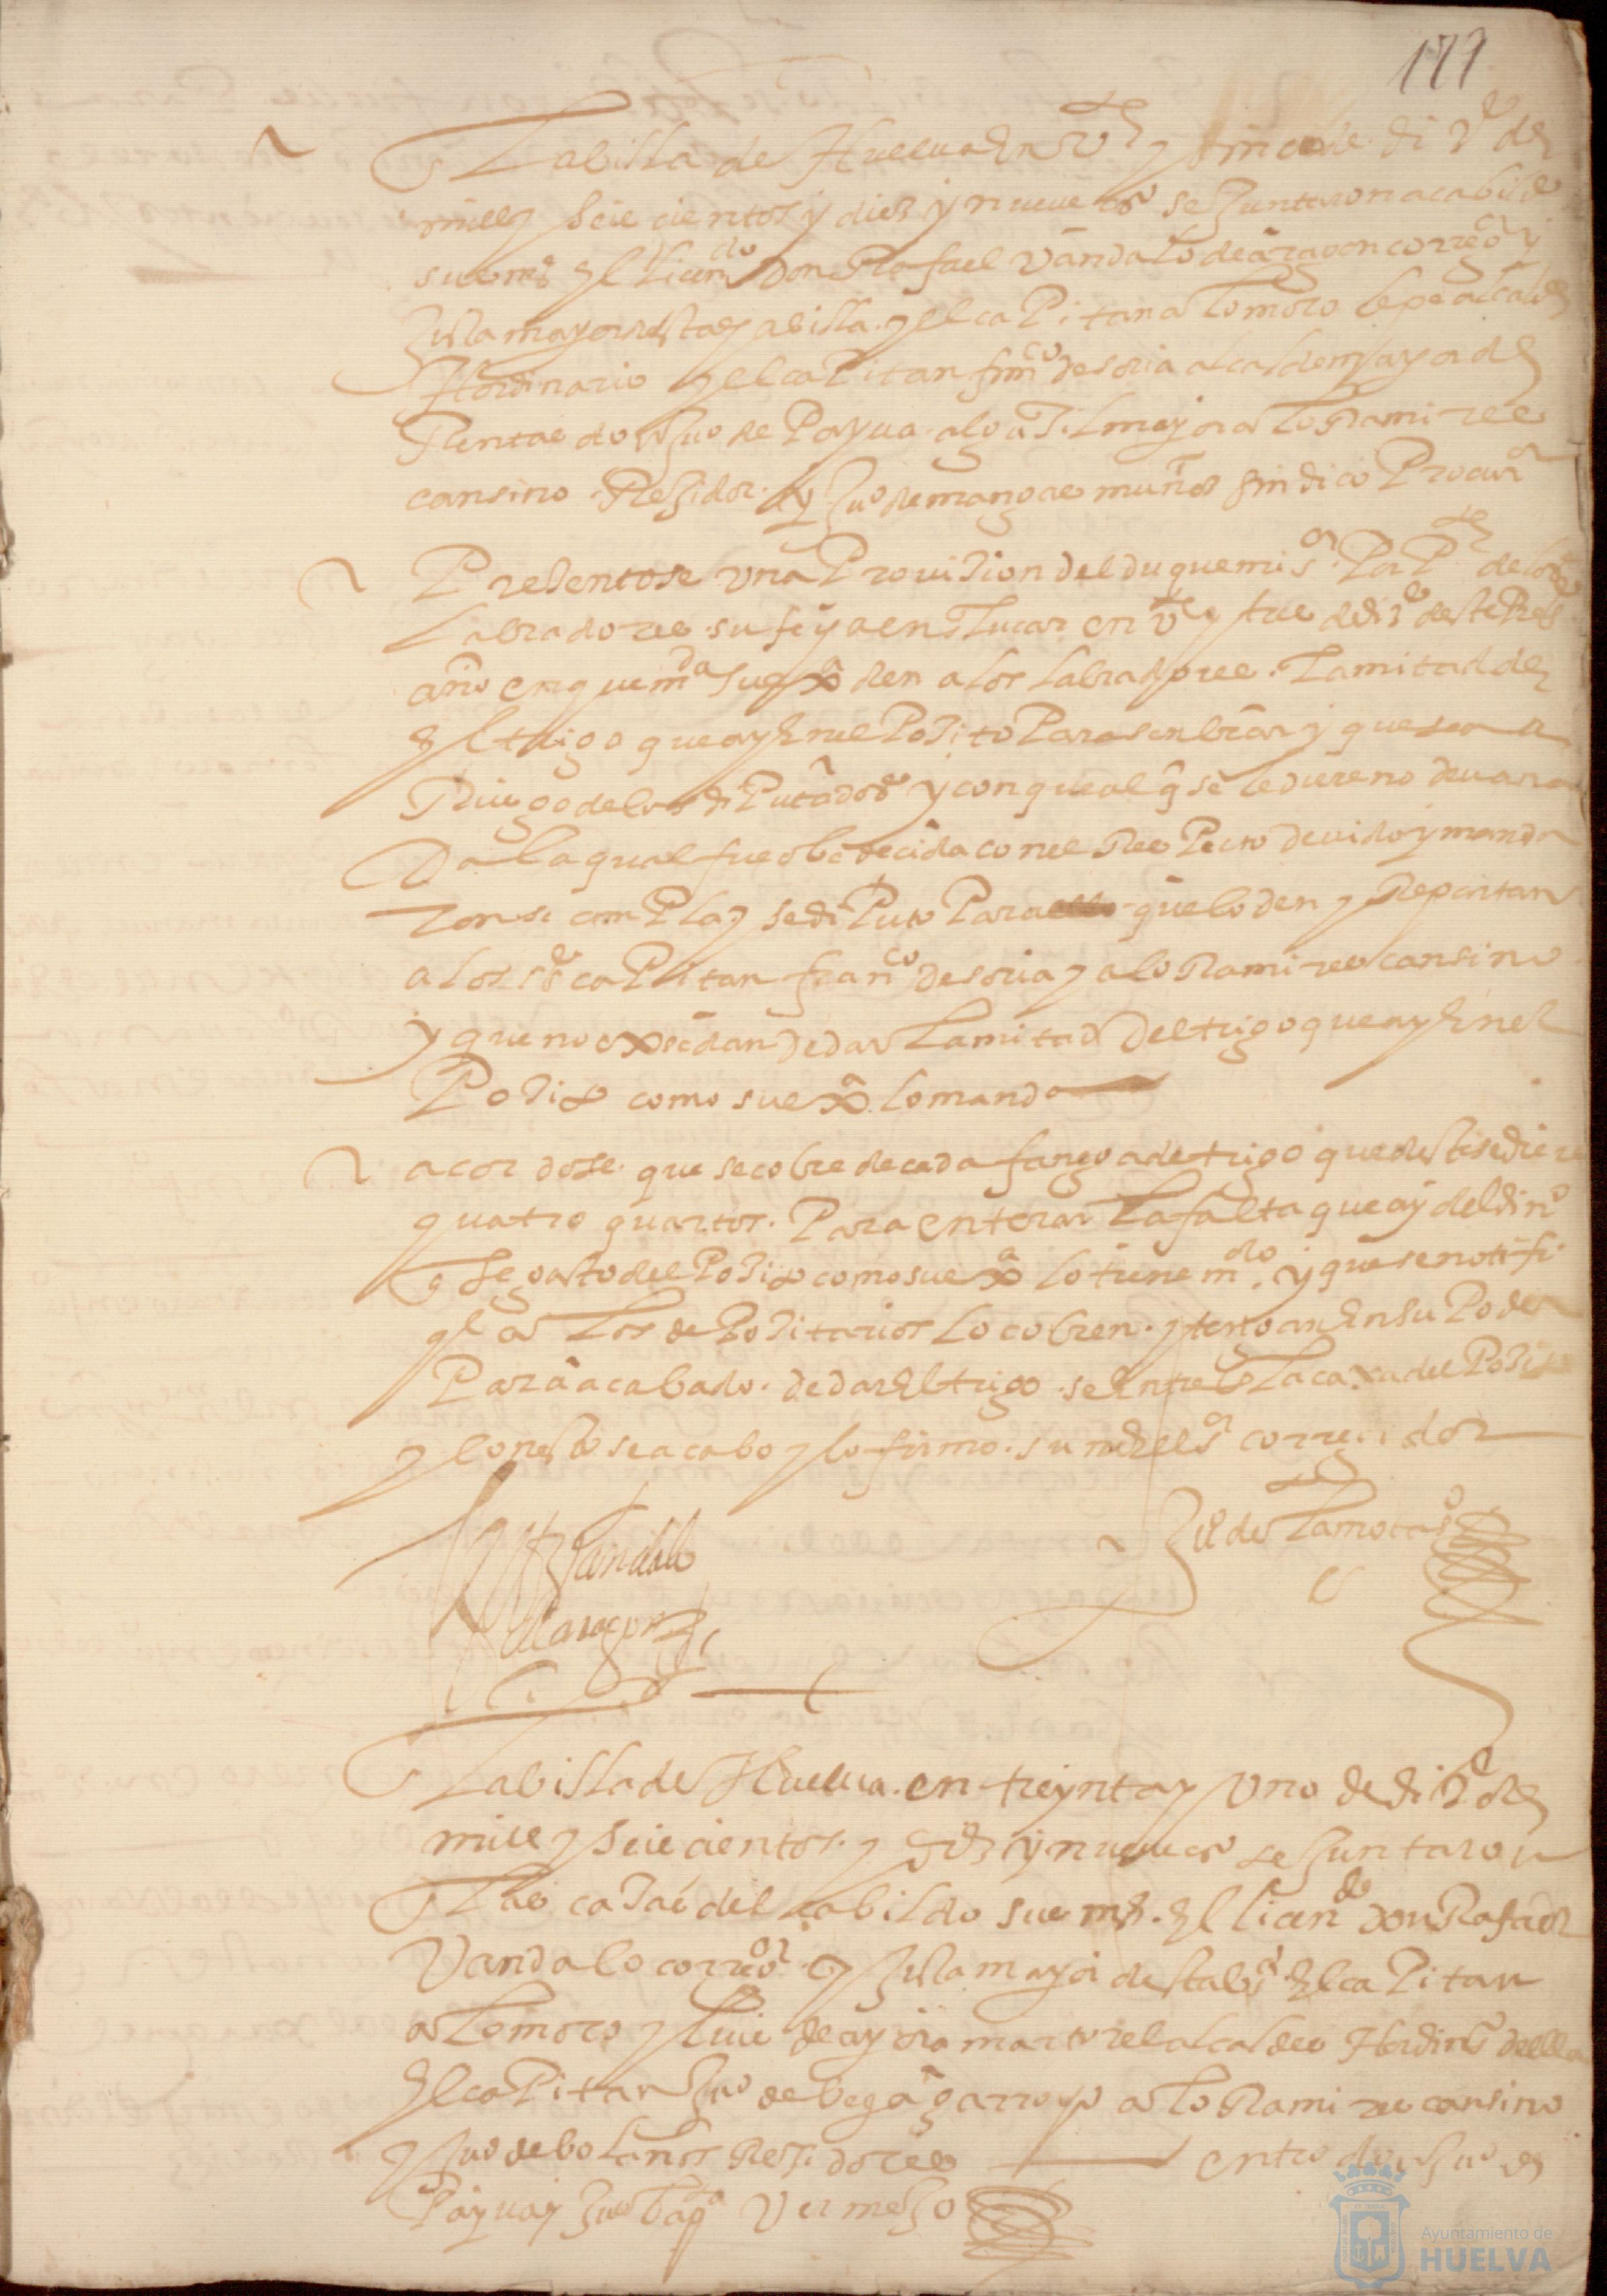 179
La billa de Huelua En Ve y sinco de diZe de
mille y seiscientos y diez y nueve as se Juntaron a cabildo
su md El licendo don Rafael Vandalo de aragon corregor y
Justa mayor desta billa y El capitan alo moro lepe alcalde
Hordinario y El capitan franco de soria alcalde mayor de
Rentas don Juo de Payua alguazil mayor alo Ramires
cansino Regidor y Juo de mangas muños sindico Procur
Presentose vna Provision del duque mi sor Por Pte de los
labradores su fha en sanlucar en Ve y tres de diZe deste Pres
año en que mda su exa den a los labradores la mitad de
El trigo que ay En el Posito Para senbrar y que sea a
Riesgo de los diputados y con que al q se le diere no deua nada
la qual fue obedecida con el Respecto deuido y manda
ron se cumpla y se diputo Para que lo den y Repartan
a los sres capitan franco de soria y alo Ramires cansino
y que no exsedan de dar la mitad del trigo que ay En el
Posito como su exa lo manda
acordose que se cobre de cada fanega de trigo que desta se diere
quatro quartos Para enterar la falta que ay del dino
gasto del Posito como su exa lo tiene mdo y que se notifi
q a los depositarios lo cobren y tengan En su Poder
Para acabado de dar El trigo se Entre En la caxa del Posito
y con esto se acabo y lo firmo su md El sor corregidor
Rf Vandalo
de aragon
Gil de la mota sno
La billa de Huelua en treynta y Vno de diZe de
mille y seiscientos y diez y nueve as se Juntaron
En las casas del cabildo su md El licendo don Rafael
Vandalo corregor y Justa mayor desta ba El capitan
alo moro y luis de ayora martorel alcaldes Hordinos della
El capitan Juo de bega garroyo alo Ramires cansino
y Juo de bolaños Regidores entro don Juo de
Payua y Juo bapta Vermejo
Ayuntamiento de
HUELVA